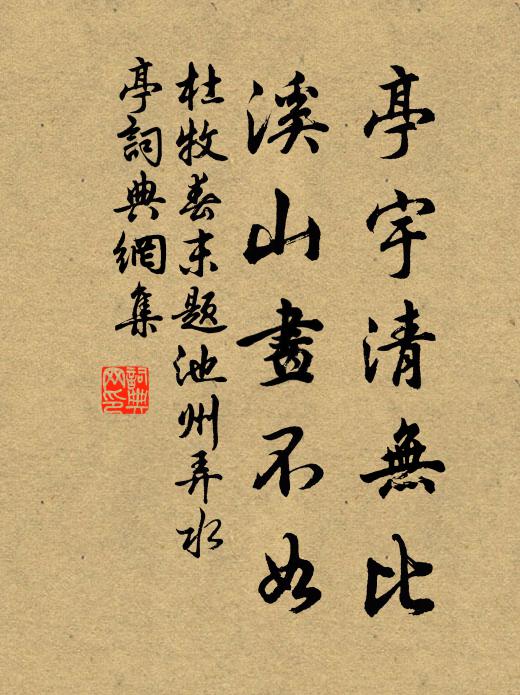 亭宇清無比
溪山畫不如
杜牧春末題池州弄水
亭詞典網集
詞典
网印